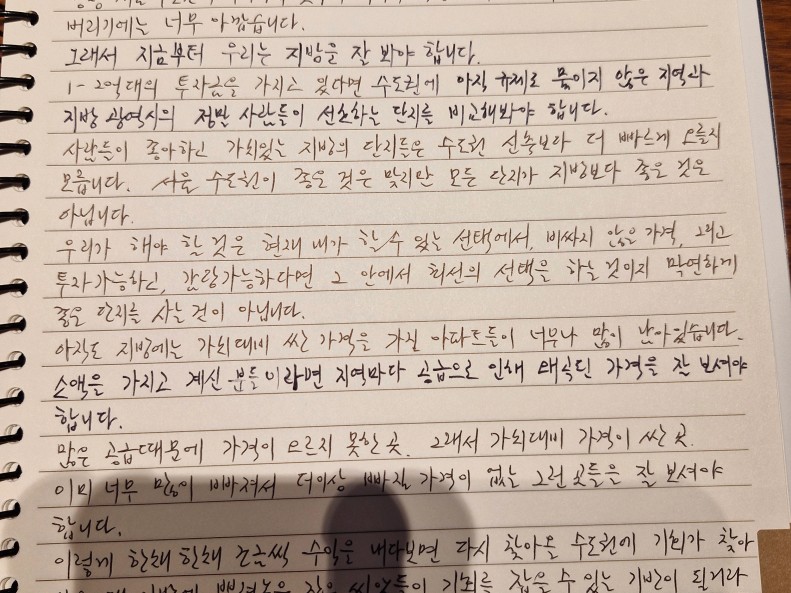 버리기에는 너무 아깝습니다.
그래서 지금부터 우리는 지방을 잘 봐야 합니다.
1-2억대의 투자금을 가지고 있다면 수도권에 아직 규제로 묶이지 않은 지역과
지방 광역시의 정말 사람들이 선호하는 단지를 비교해봐야 합니다.
사람들이 좋아하고 가치있는 지방의 단지들은 수도권 신축보다 더 빠르게 오를지
모릅니다. 서울 수도권이 좋은 것은 맞지만 모든 단지가 지방보다 좋은 것은
아닙니다.
우리가 해야 할 것은 현재 내가 할 수 있는 선택에서, 비싸지 않은 가격, 그리고
투자가능하고, 감당가능하다면 그 안에서 최선의 선택을 하는 것이지 막연하게
좋은 단지를 사는 것이 아닙니다.
아직도 지방에는 가치대비 싼 가격을 가진 아파트들이 너무나 많이 남아있습니다.
소액을 가지고 계신 분들이라면 지역마다 공급으로 인해 왜곡된 가격을 잘 보셔야
합니다.
많은 공급때문에 가격이 오르지 못한 곳. 그래서 가치대비 가격이 싼 곳.
이미 너무 많이 빠져서 더이상 빠질 가격이 없는 그런 곳들을 잘 보셔야
합니다.
이렇게 한해 한해 조금씩 수익을 내다보면 다시 찾아올 수도권에 기회가 찾아
씨앗들이 기회를 잡을 수 있는 기반이 될거라